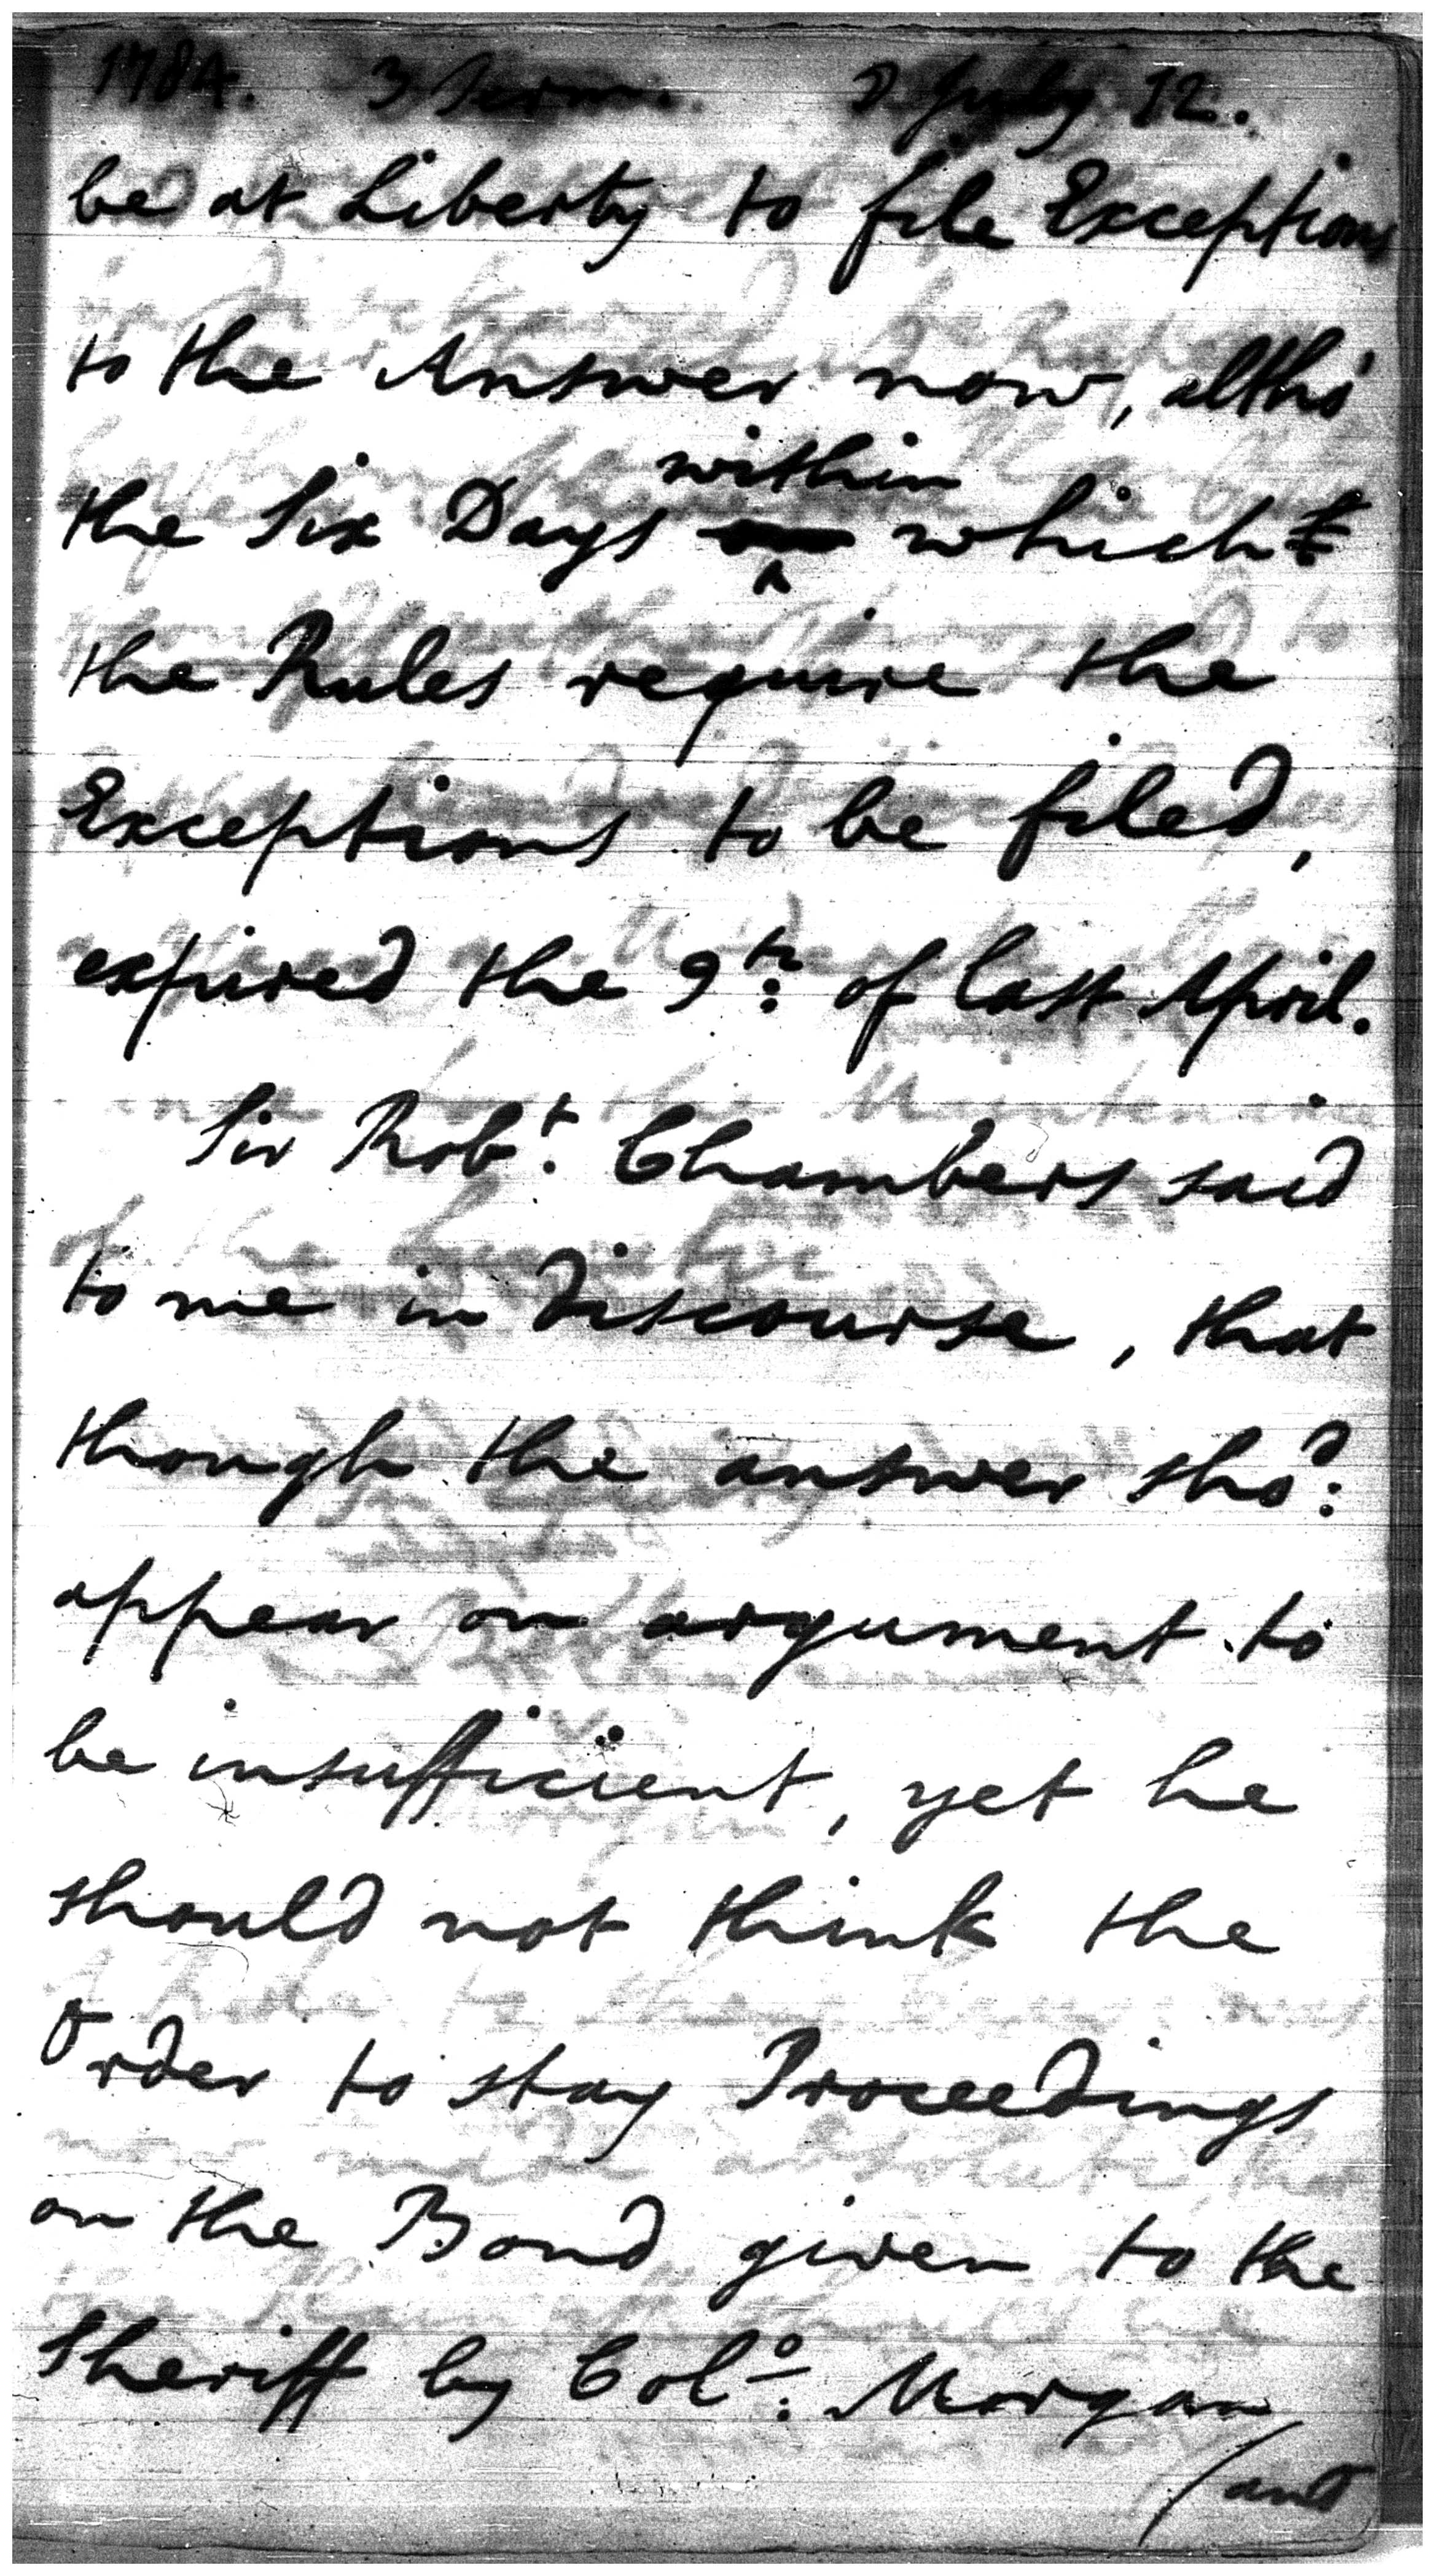 1784. 3 Term. July 12.
be at Liberty to file Exceptions
to the Answer now, altho'
within
the Six Days which
the Rules require the
Exceptions to be filed,
expired the 9th: of last April.
Sir Robt. Chambers said
to me in discourse, that
though the answer shod:
appear on argument to
be insufficient, yet he
should not think the
Order to stay Proceedings
on the Bond given to the
Sheriff by Colo: Morgan
(and